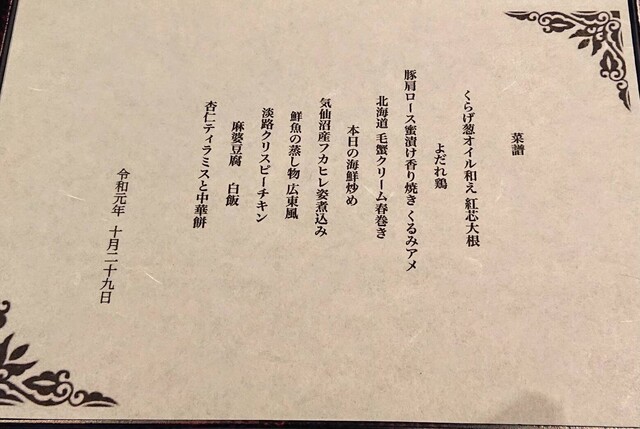 菜譜
くらげ葱オイル和え 紅芯大根
よだれ鶏
豚肩ロース蜜漬け香り焼き くるみアメ
北海道 毛蟹クリーム春巻き
本日の海鮮炒め
気仙沼産フカヒレ姿煮込み
鮮魚の蒸し物 広東風
淡路クリスピーチキン
麻婆豆腐 白飯
杏仁ティラミスと中華餅
令和元年 十月二十九日